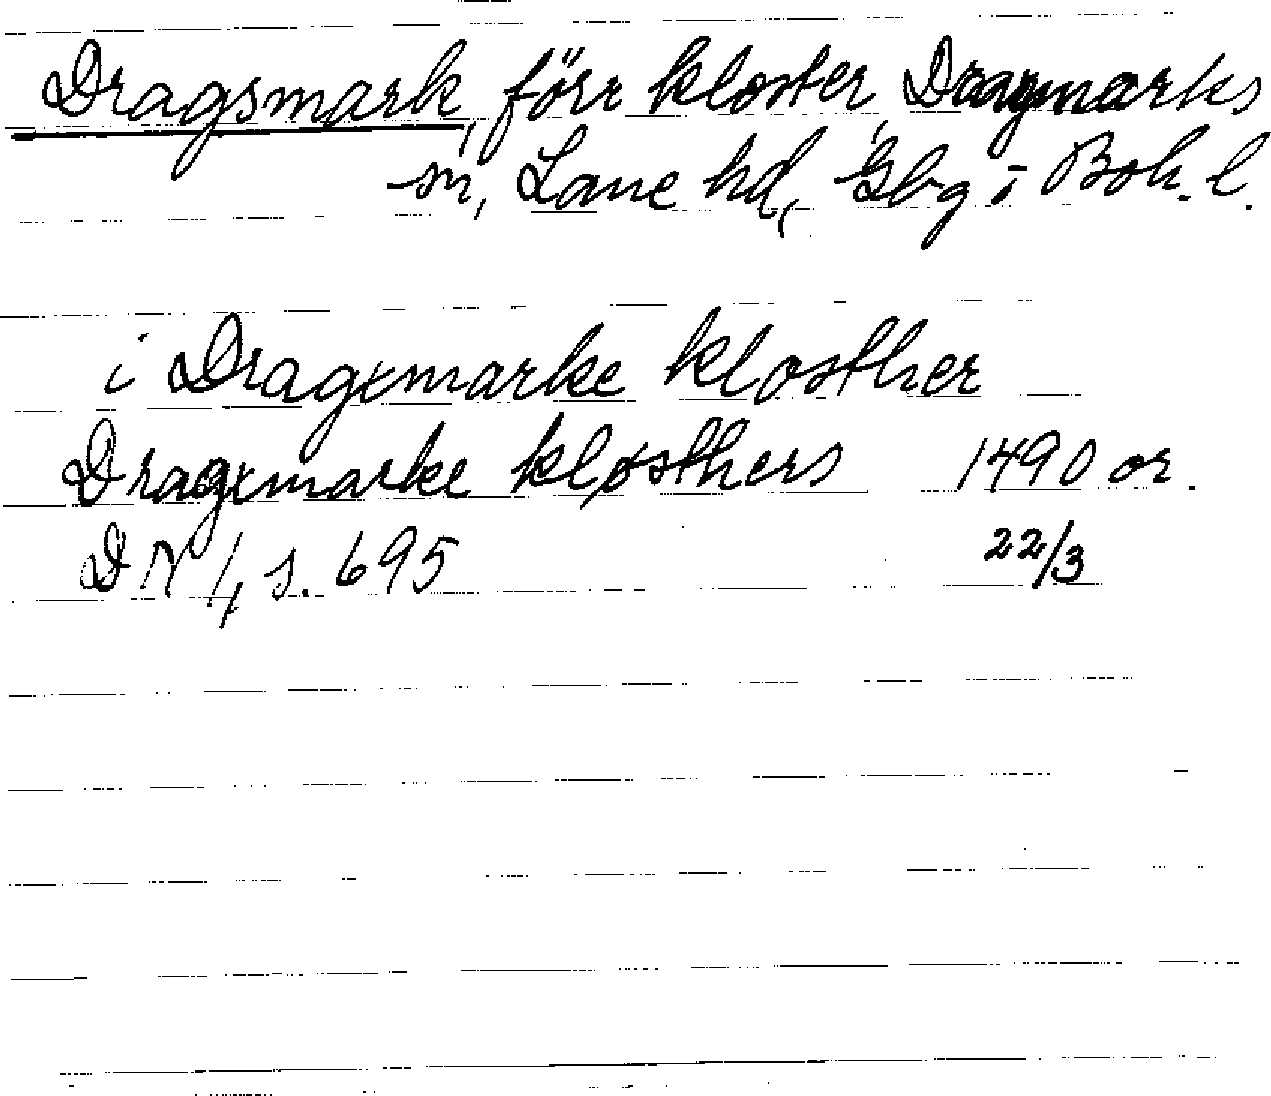 Dragsmark, förr kloster, Dragsmarks
sn, Lane hd, Gbg i Boh. l.
i Dragxmarke klosther
Dragxmarke kløsthers 1490 or.
DN 1, s. 695 22/3